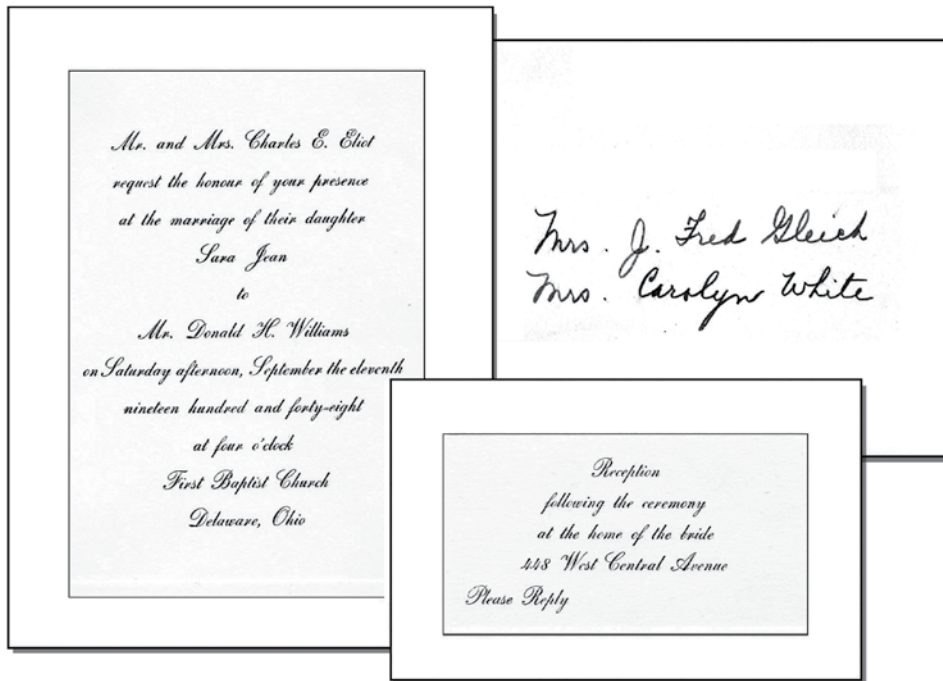 Mr. and Mrs. Charles E. Eliot
request the honour of your presence
at the marriage of their daughter
Sara Jean
to
Mr. Donald H. Williams
on Saturday afternoon, September the eleventh
nineteen hundred and forty-eight
at four o'clock
First Baptist Church
Delaware, Ohio
Mrs. J. Fred Gleich
Mrs. Carolyn White
Reception
following the ceremony
at the home of the bride
448 West Central Avenue
Please Reply